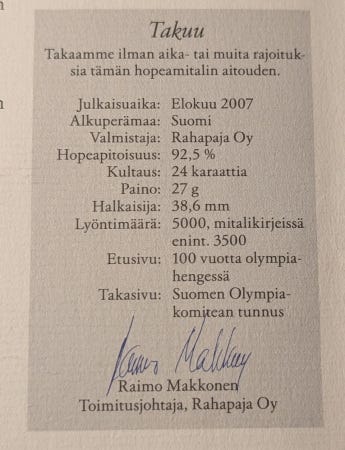 Takuu
Takaamme ilman aika- tai muita rajoituk-
sia tämän hopeamitalin aitouden.
Julkaisuaika: Elokuu 2007
Alkuperämaa: Suomi
Valmistaja: Rahapaja Oy
Hopeapitoisuus: 92,5 %
Kultaus: 24 karaattia
Paino: 27 g
Halkaisija: 38,6 mm
Lyöntimäärä: 5000, mitalikirjeissä
enint. 3500
Etusivu: 100 vuotta olympia-
hengessä
Takasivu: Suomen Olympia-
komitean tunnus
Raimo Makkonen
Raimo Makkonen
Toimitusjohtaja, Rahapaja Oy